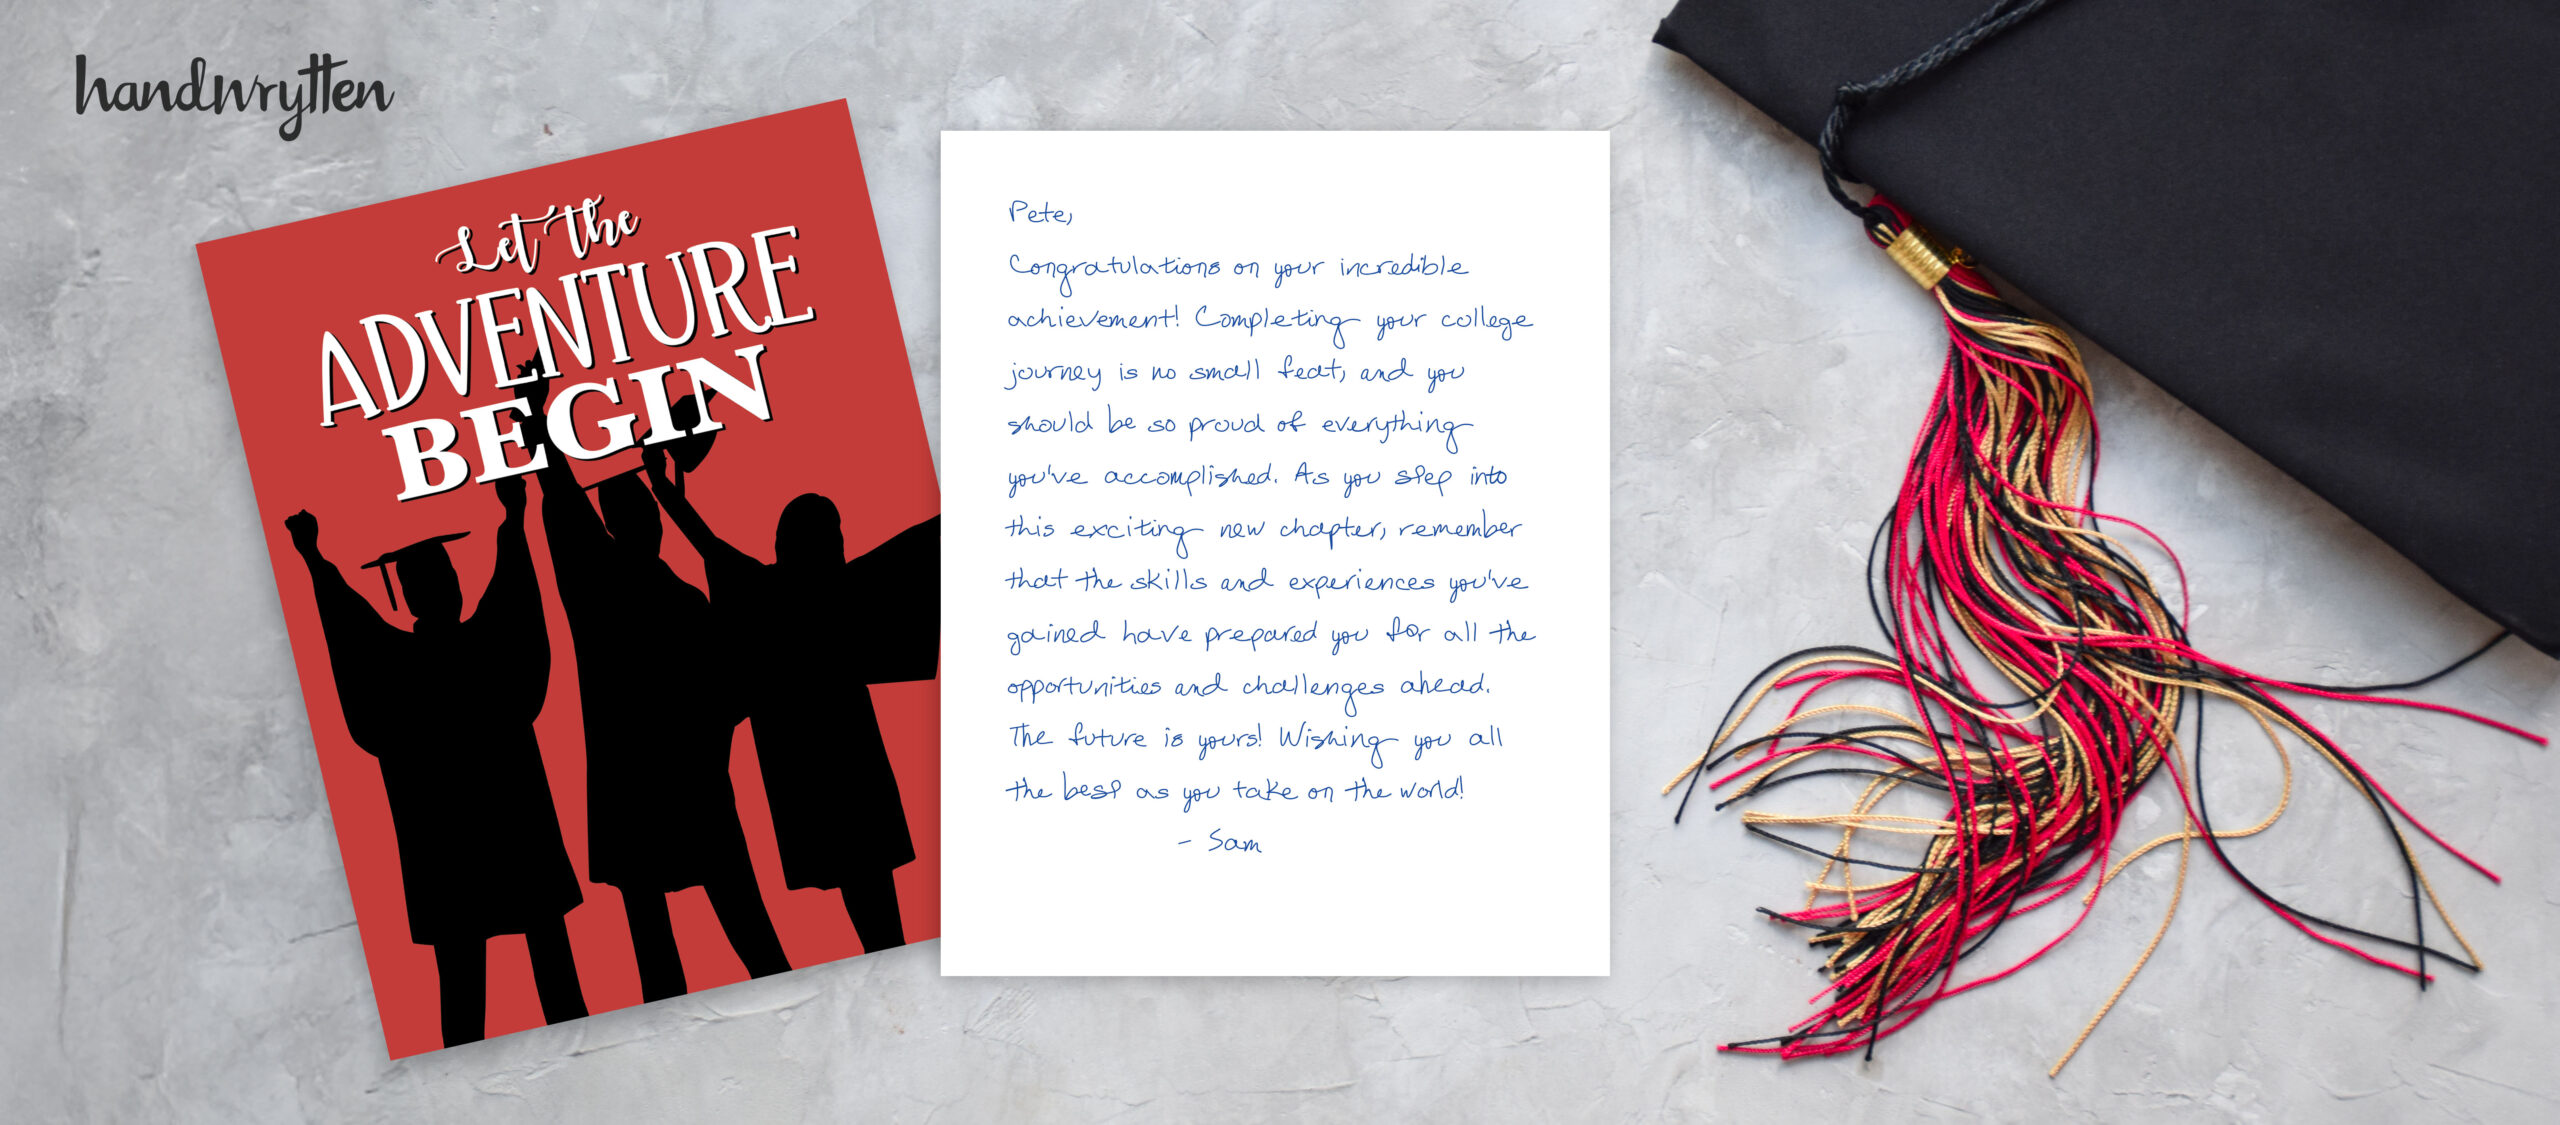 handwrytten
Let the
ADVENTURE
BEGIN
Pete,
Congratulations on your incredible
achievement! Completing your college
journey is no small feat, and you
should be so proud of everything
you've accomplished. As you step into
this exciting new chapter, remember
that the skills and experiences you've
gained have prepared you for all the
opportunities and challenges ahead.
The future is yours! Wishing you all
the best as you take on the world!
- Sam